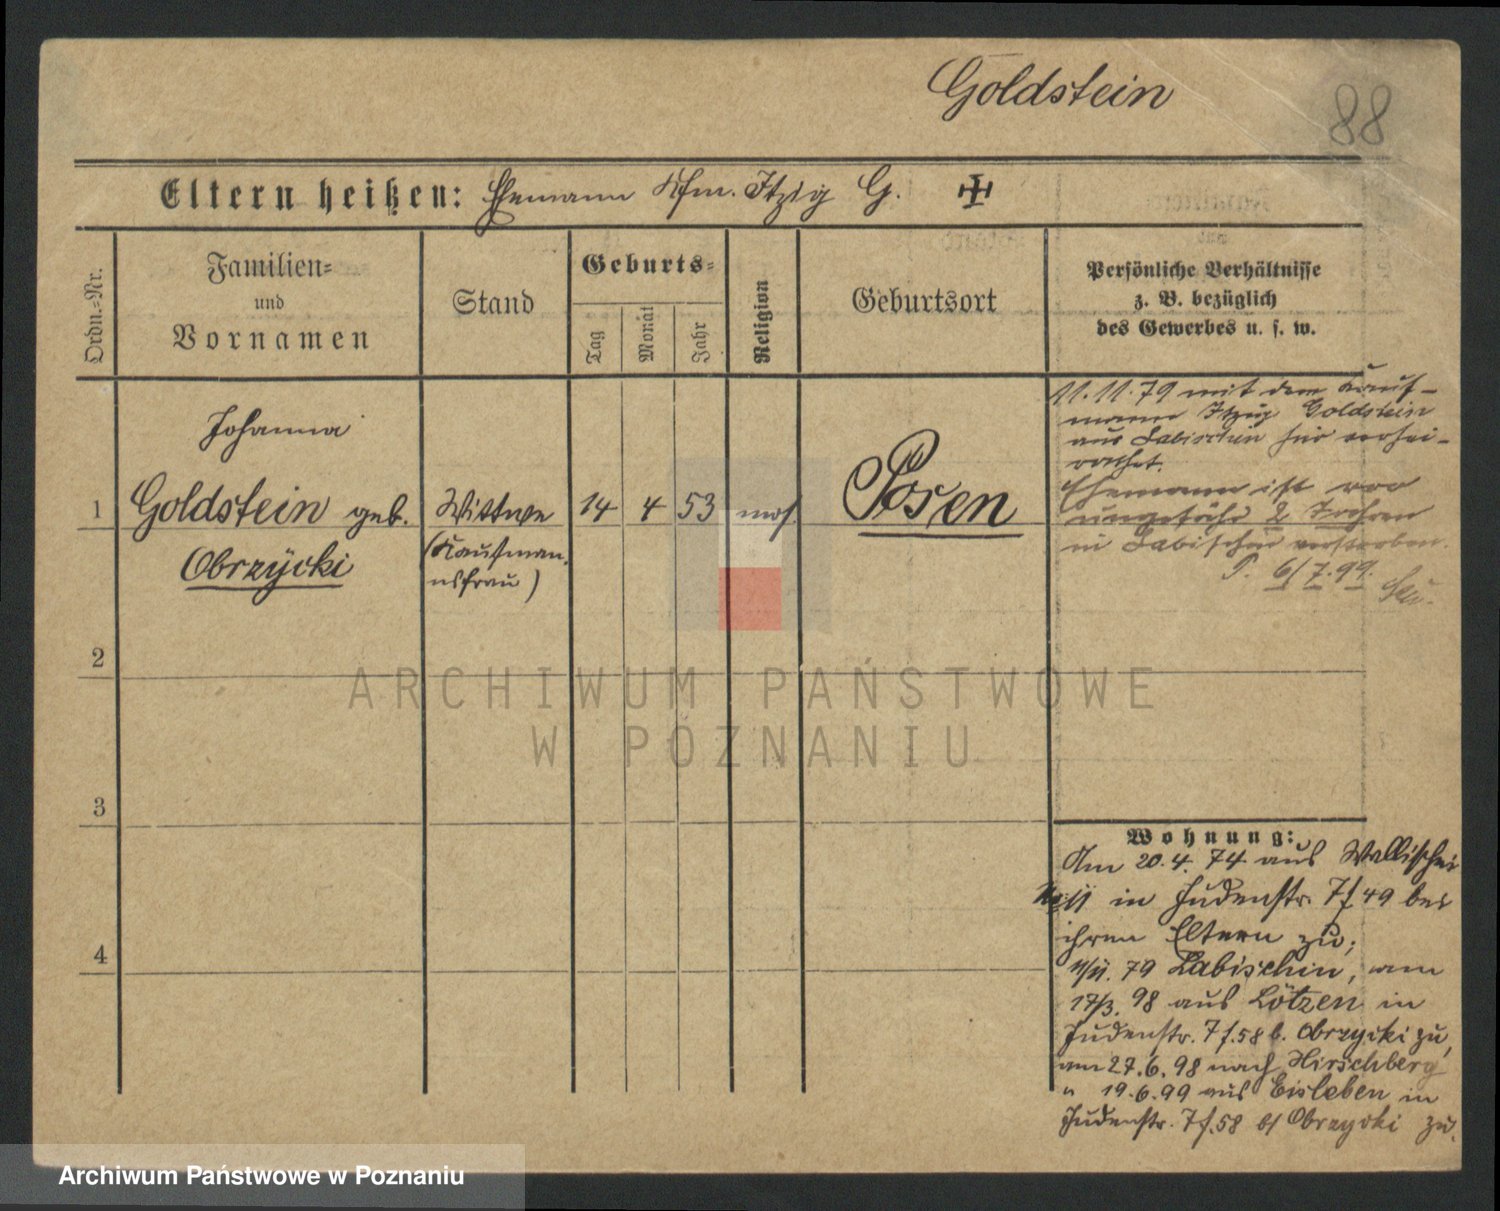 Goldstein
88
Eltern heißen: Ehemann Kfm. Itzig G. ✝
Ordn.-Nr.
Familien-
und
Vornamen
Stand
Geburts-
Tag
Monat
Jahr
Religion
Geburtsort
Persönliche Verhältnisse
z. B. bezüglich
des Gewerbes u. s. w.
Johanna
1 Goldstein geb. Wittwe 14 4 53 mos. Posen
Obrzycki
(Kaufman-
nsfrau)
11.11.79 mit dem Kauf-
mann Itzig Goldstein
aus Labischin hier verhei-
rathet.
Ehemann ist vor
ungefähr 2 Jahren
in Labischin verstorben.
P. 6/7.99.
2
3
4
Wohnung:
Am 20.4.74 aus Wallischei
in Judenstr. 7 f 49 bei
ihren Eltern zu;
11/11.79 Labischin, am
17/3.98 aus Lötzen in
Judenstr. 7 f.58 b. Obrzycki zu,
am 27.6.98 nach Hirschberg
" 19.6.99 aus Eisleben in
Judenstr. 7 f.58 b/ Obrzycki zu.
ARCHIWUM PAŃSTWOWE
W POZNANIU
Archiwum Państwowe w Poznaniu